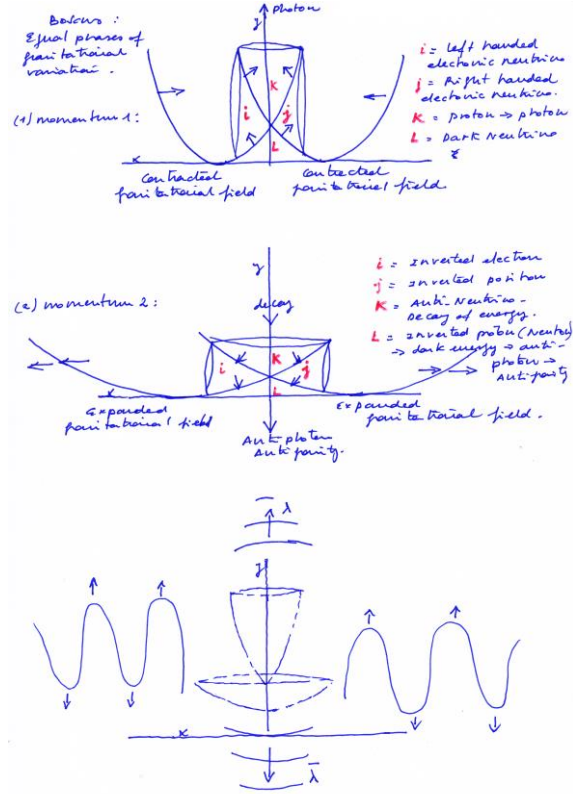 Bosons:
Equal phases of
gravitational
variation.
y photon
(1) momentum 1:
i = Left handed
electronic neutrino
j = Right handed
electronic neutrino.
K = proton → photon
L = Dark Neutrino
i
j
K
L
x
Contracted
gravitational field
Contracted
gravitational field.
(2) momentum 2:
y
decay
i = Inverted electron
j = Inverted positron
K = Anti-Neutrino-
Decay of energy.
L = Inverted proton (Neutron)
→ dark energy → anti-
photon →
Antigravity
i
j
K
L
x
Expanded
gravitational field
Expanded
gravitational field.
Antiphoton
Antigravity.
λ
y
x
λ̄